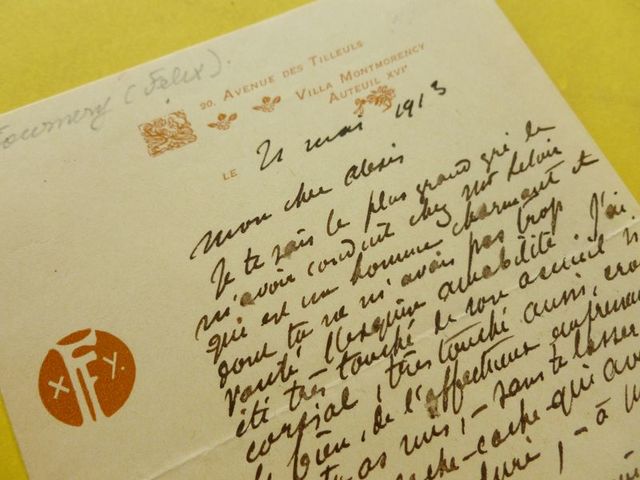 Fournery (Felix).
20. AVENUE DES TILLEULS
VILLA MONTMORENCY
AUTEUIL XVIe
LE 21 mai 1913
Mon cher Alexis
Je te sais le plus grand gré de
m'avoir conduit chez Mr Leloir
qui est un homme charmant et
dont tu ne m'avais pas trop
vanté l'exquise amabilité. J'ai
été très touché de son accueil si
cordial, très touché aussi, cro
bien, de l'affectueux empressem
tu as mis, - sans te lasser
cache-cache qui av
duré, - à
X F Y.